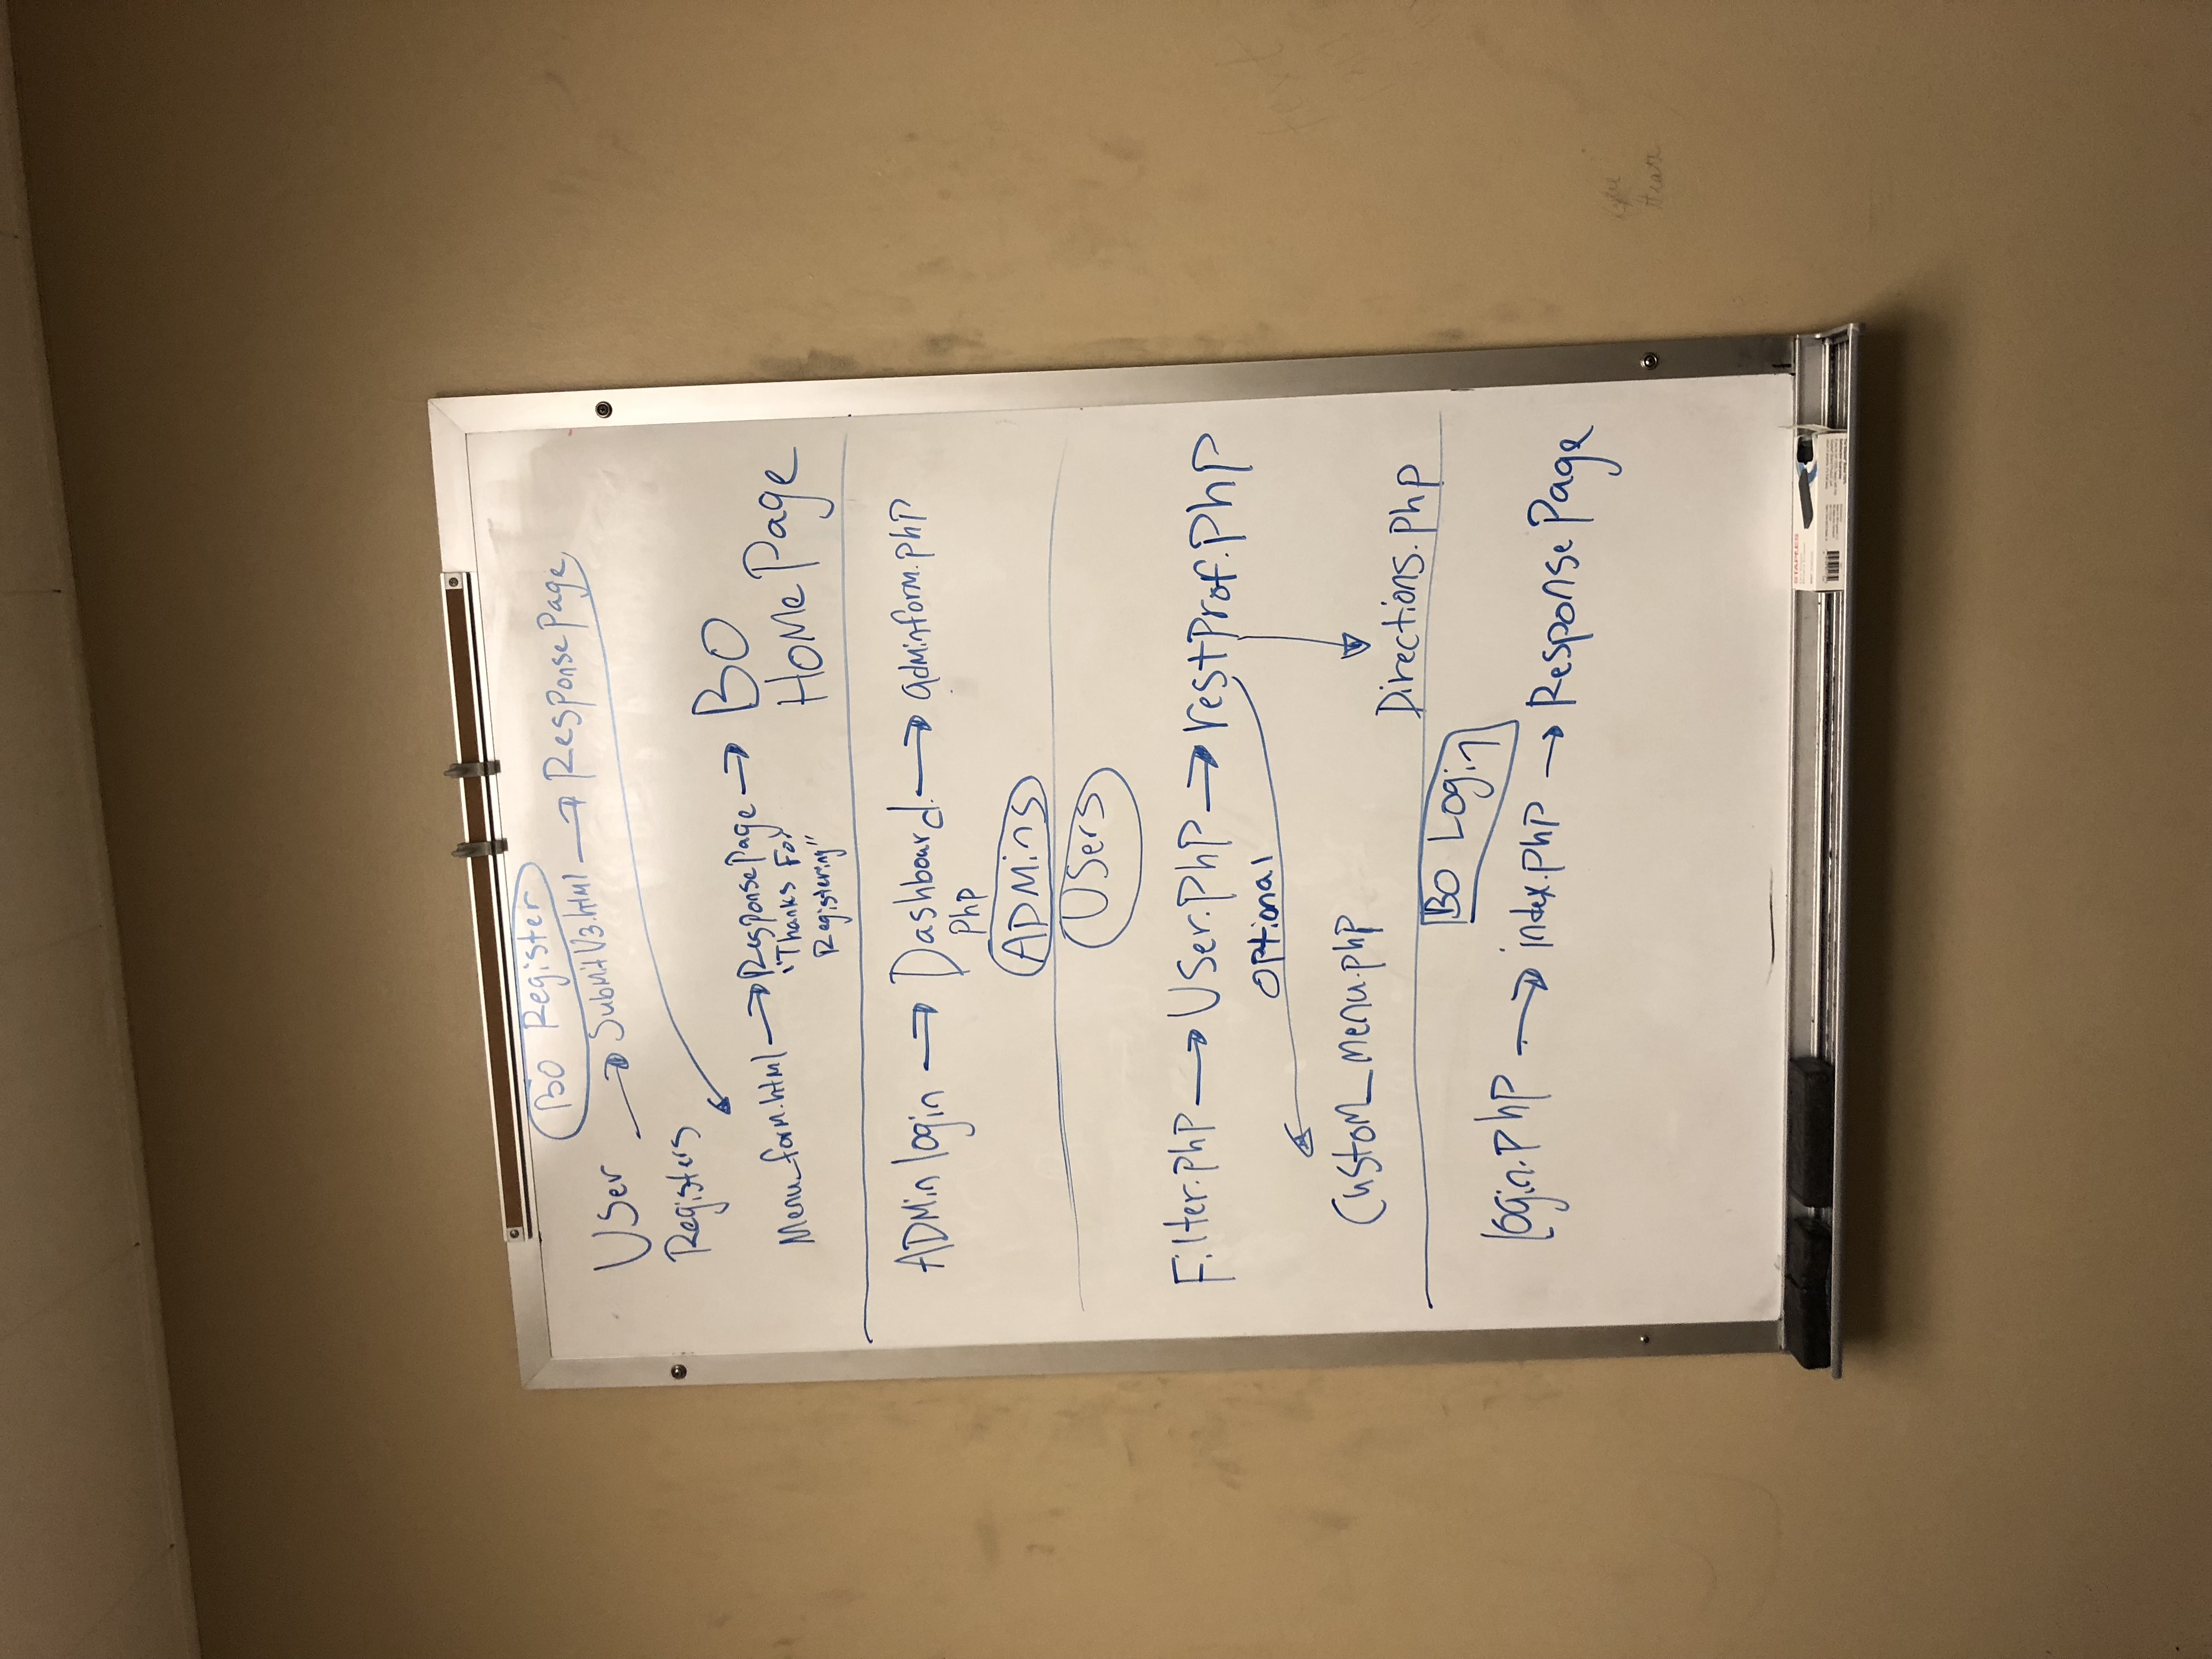 BO Register
User → SubmitV3.html → Response Page
Registers
Menu_form.html → Response Page → BO
"Thanks For
Registering"
Home Page
ADMin login → Dashboard. → adminform.php
php
ADMins
Users
Filter.php → User.php → restProf.php
optional
Custom_menu.php
Directions.php
BO Login
login.php → index.php → Response Page
STAPLES